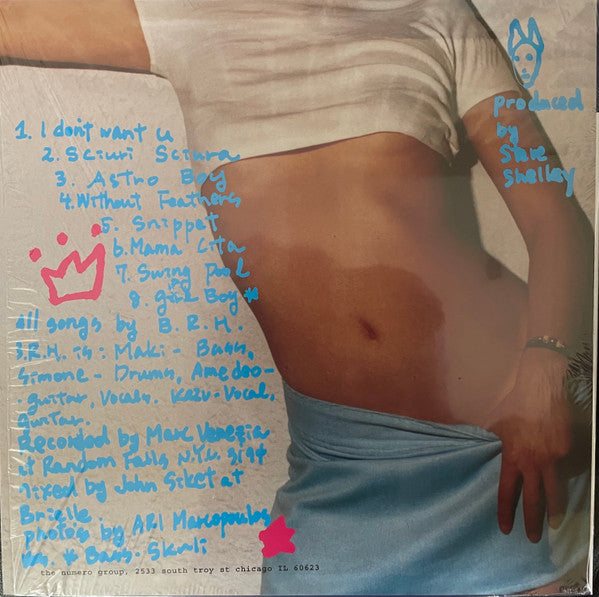 1. I don't want u
2. Sciuri Sciura
3. Astro Boy
4. Without Feathers
5. Snippet
6. Mama Cita
7. Swing Pool
8. girl Boy *
all songs by B.R.H.
B.R.H. is: Maki - Bass,
Simone - Drums, Amedeo -
guitar, Vocals. Kazu - Vocal,
guitar.
Recorded by Marc Venezia
at Random Falls N.Y.C. 3/94
Mixed by John Siket at
Brielle
photos by ARI Marcopoulos
* Bass - Skuli
the numero group, 2533 south troy st chicago IL 60623
produced
by
Steve
Shelley